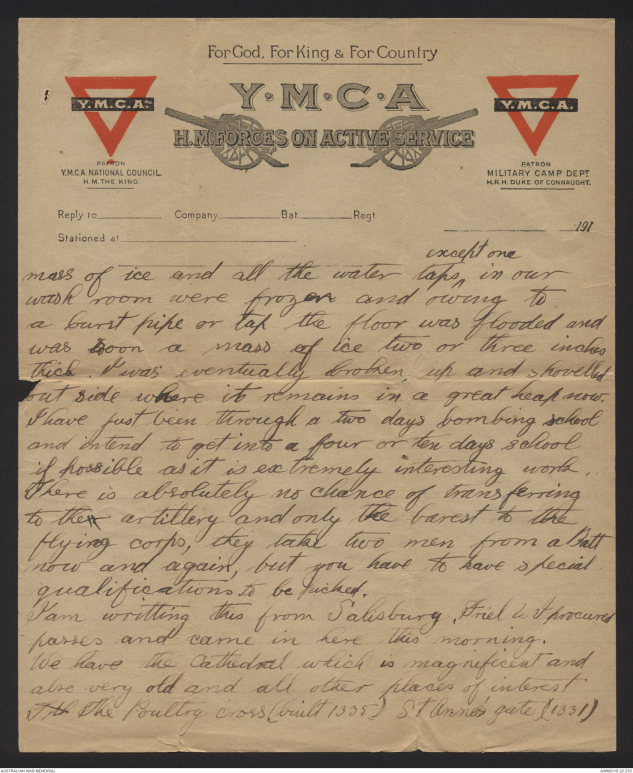 For God, For King & For Country
Y·M·C·A
H.M. FORCES ON ACTIVE SERVICE
Y.M.C.A.
Y.M.C.A.
PATRON
Y.M.C.A. NATIONAL COUNCIL.
H.M. THE KING.
PATRON
MILITARY CAMP DEPT
H.R.H. DUKE OF CONNAUGHT.
Reply to Company Bat. Regt
Stationed at
191
except one
mass of ice and all the water taps ^ in our
wash room were frozen and owing to
a burst pipe or tap the floor was flooded and
was soon a mass of ice two or three inches
thick. I was eventually broken, up and shovelled
out side where it remains in a great heap now.
I have just been through a two days bombing school
and intend to get into a four or ten days school
if possible as it is extremely interesting work.
There is absolutely no chance of transferring
to the artillery and only the barest to the
flying corps, they take two men from a Batt
now and again, but you have to have special
qualifications to be picked.
I am writting this from Salisbury. Friel & I procured
passes and came in here this morning.
We have the Cathedral which is magnificent and
also very old and all other places of interest
The Poultry cross (built 1335) St Annes gate (1331)
AUSTRALIAN WAR MEMORIAL